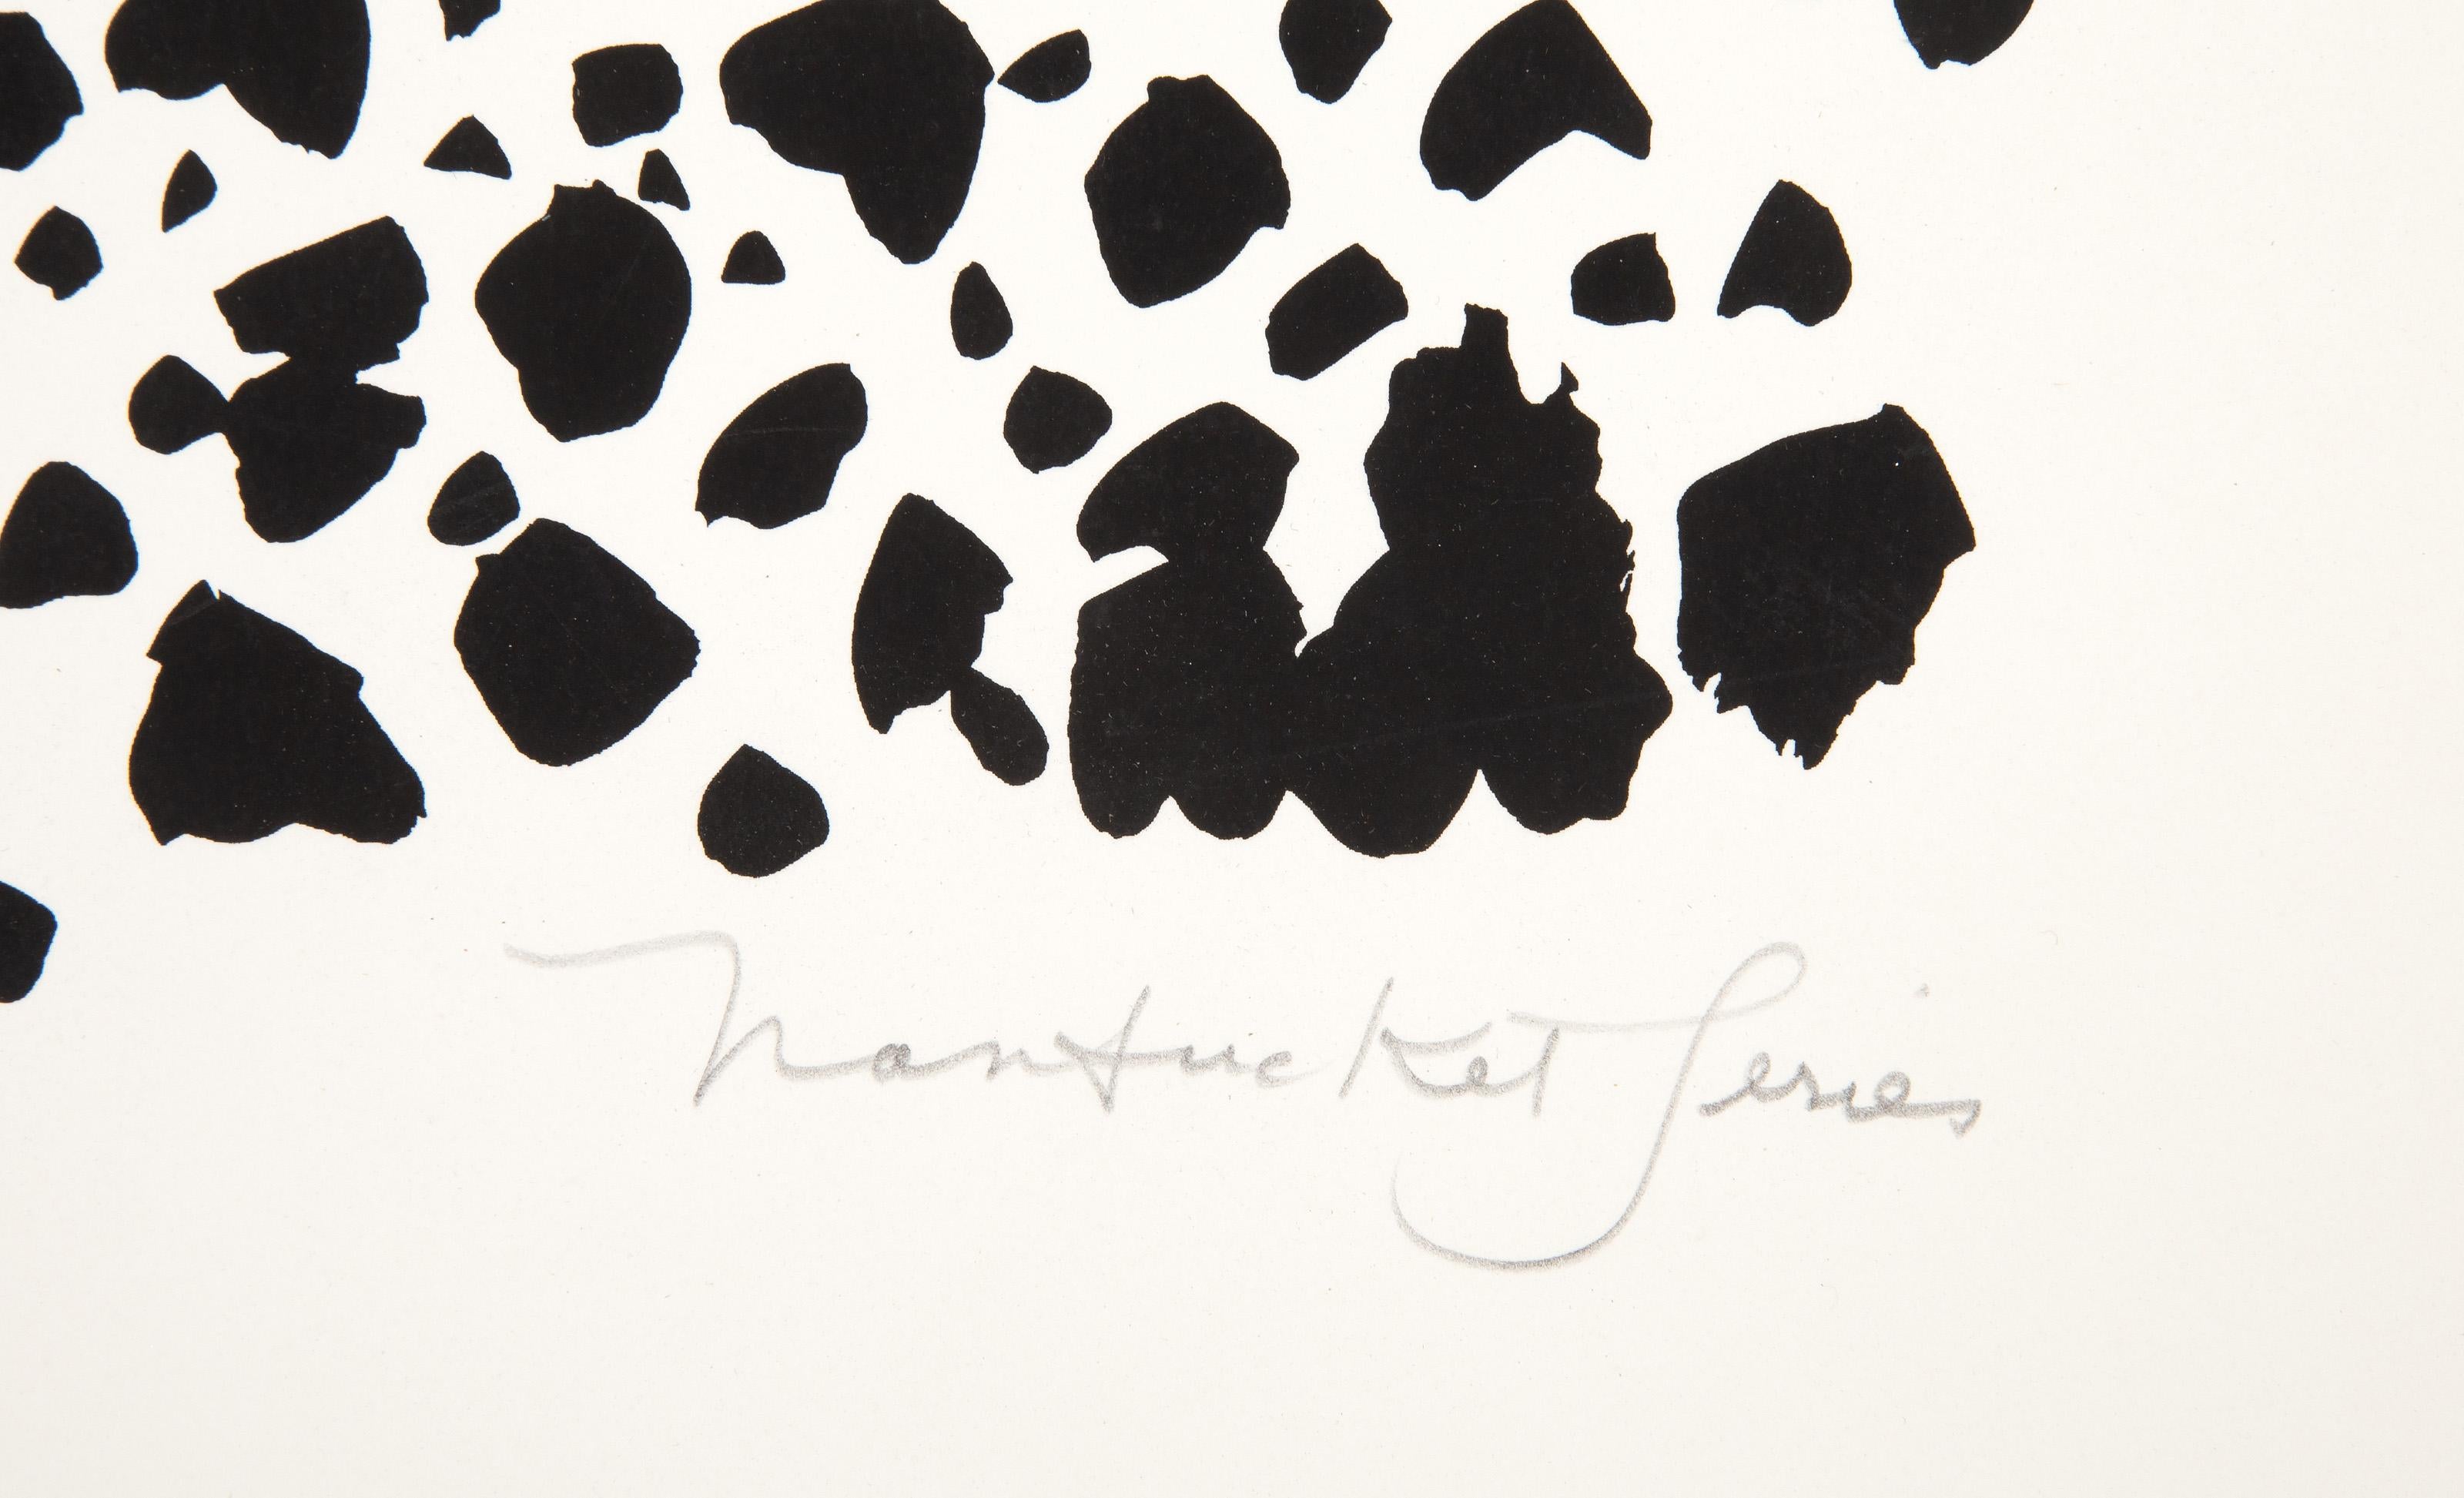 Nantucket Series